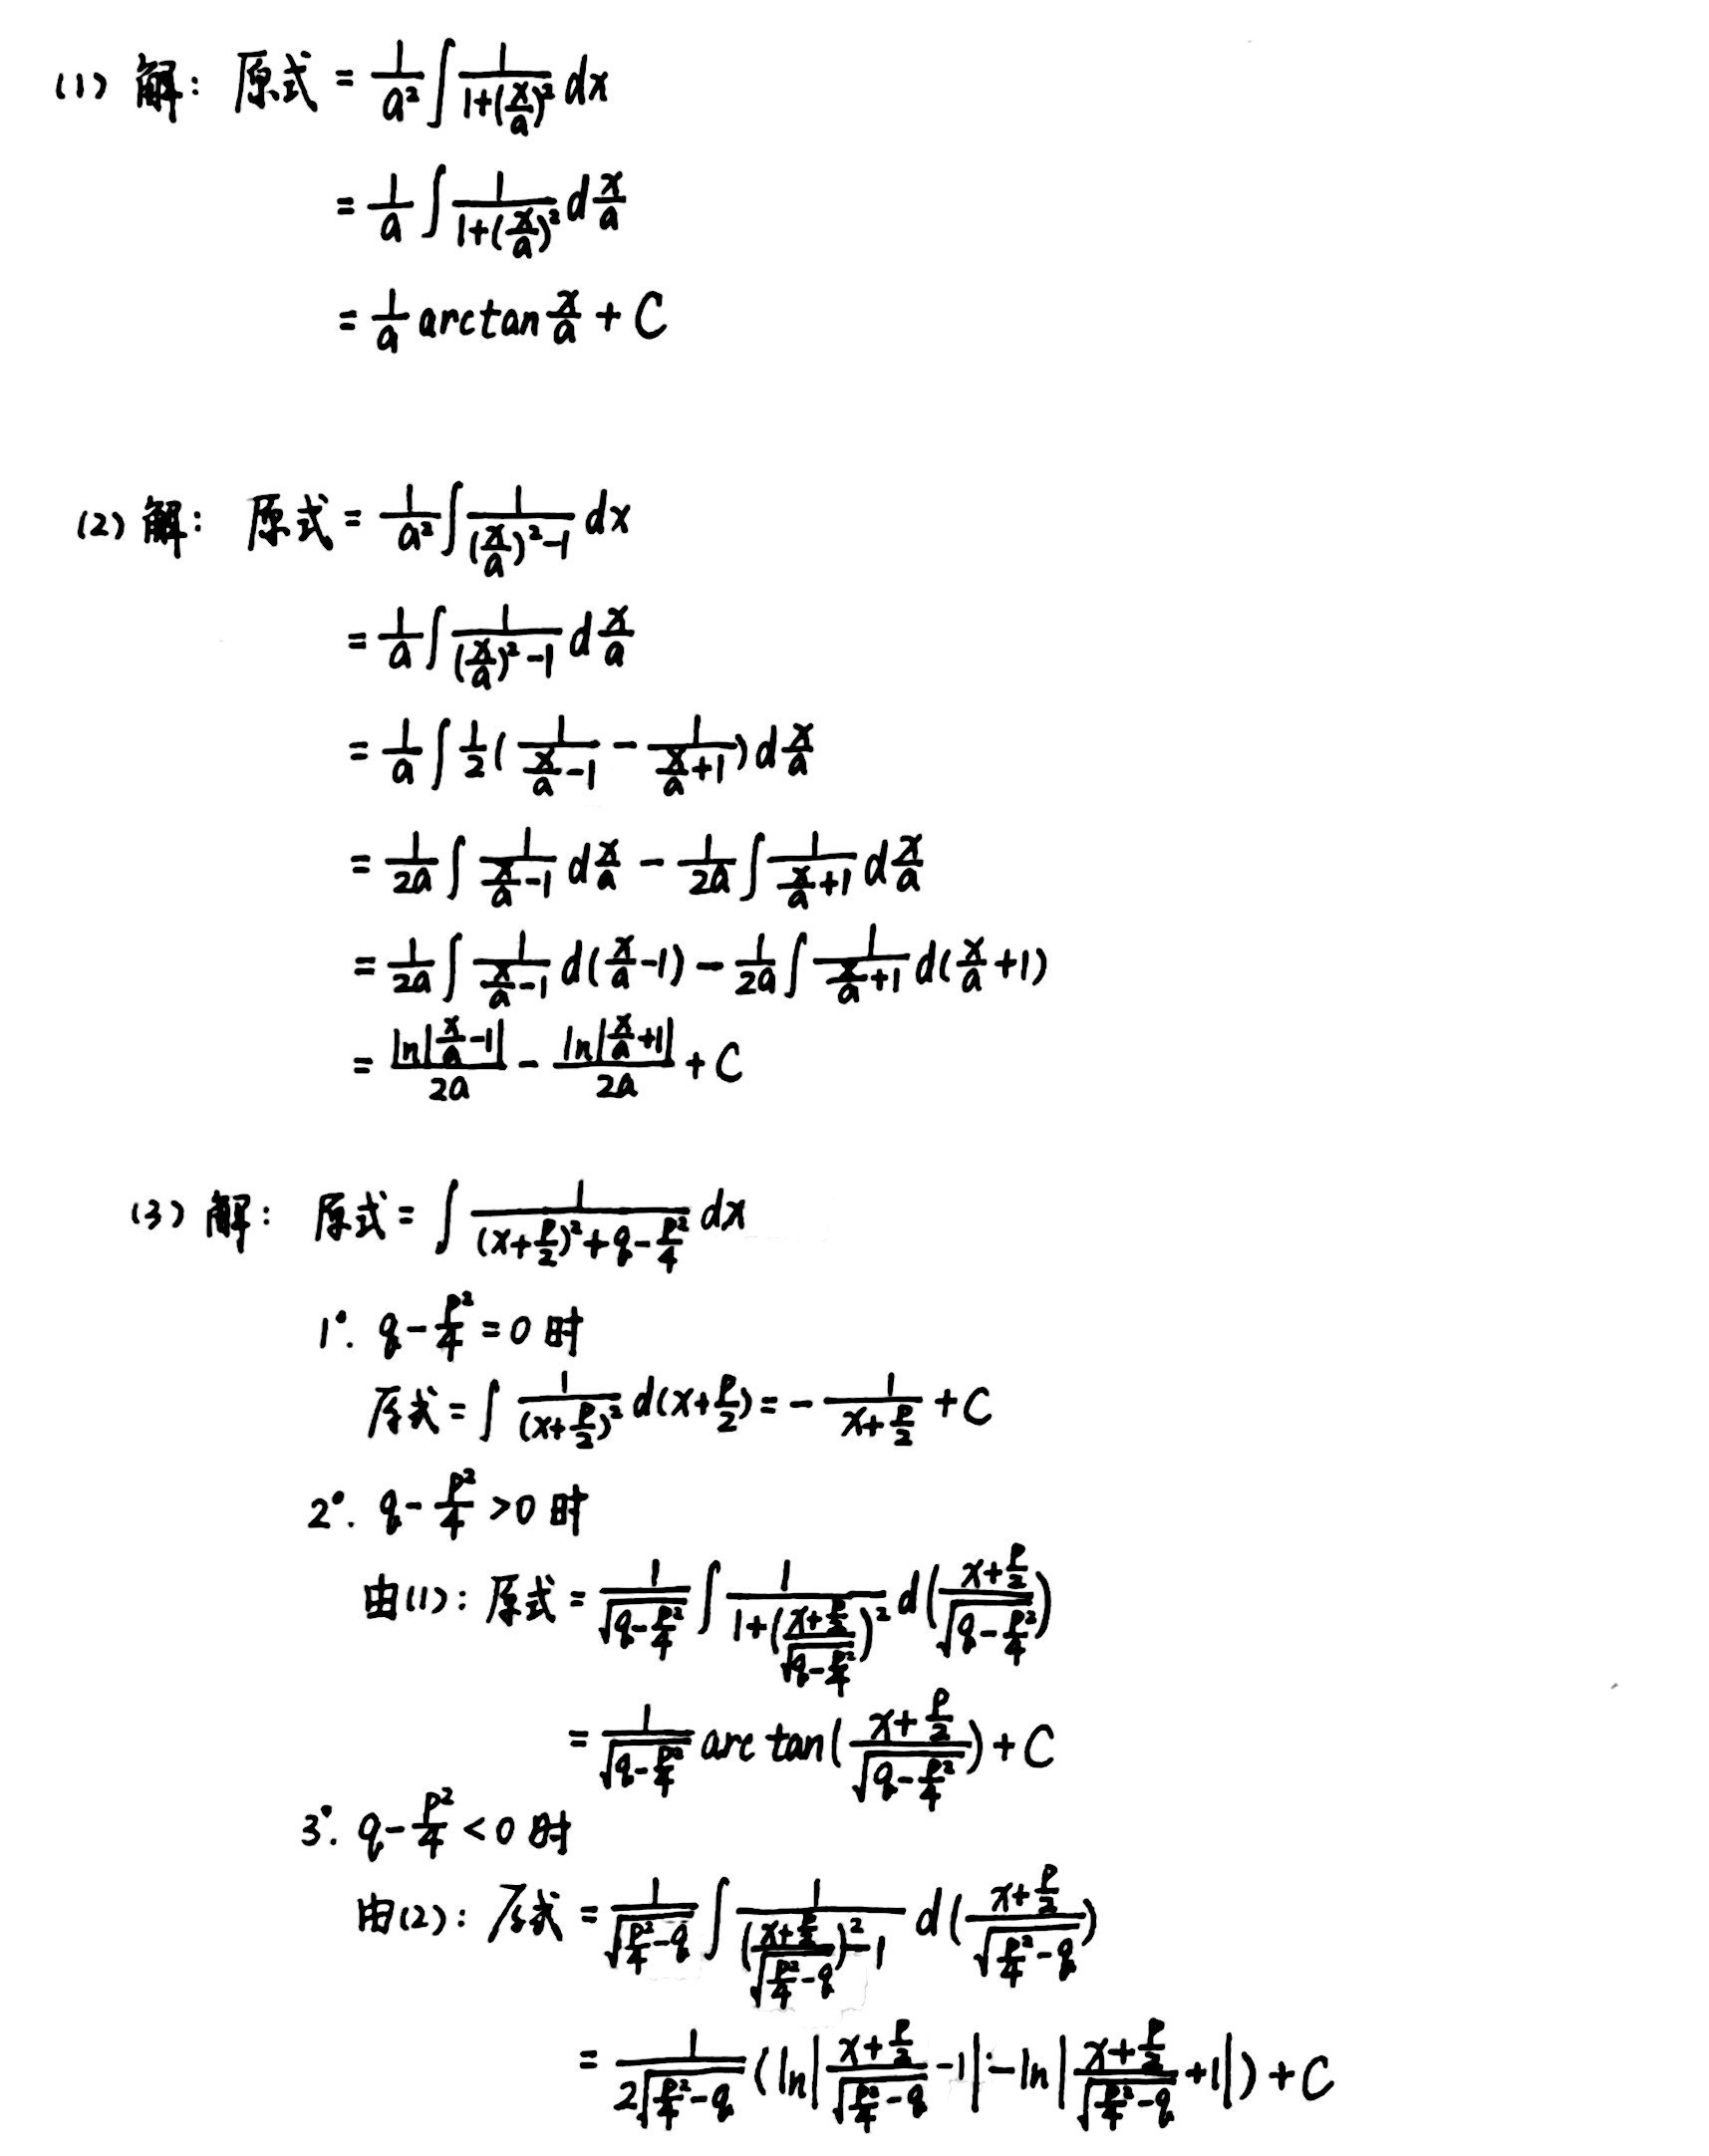 (1) 解: 原式 = \frac{1}{a^2}∫\frac{1}{1+(\frac{x}{a})^2}dx
= \frac{1}{a}∫\frac{1}{1+(\frac{x}{a})^2}d\frac{x}{a}
= \frac{1}{a}arctan\frac{x}{a} + C
(2) 解: 原式 = \frac{1}{a^2}∫\frac{1}{(\frac{x}{a})^2-1}dx
= \frac{1}{a}∫\frac{1}{(\frac{x}{a})^2-1}d\frac{x}{a}
= \frac{1}{a}∫\frac{1}{2}(\frac{1}{\frac{x}{a}-1} - \frac{1}{\frac{x}{a}+1})d\frac{x}{a}
= \frac{1}{2a}∫\frac{1}{\frac{x}{a}-1}d\frac{x}{a} - \frac{1}{2a}∫\frac{1}{\frac{x}{a}+1}d\frac{x}{a}
= \frac{1}{2a}∫\frac{1}{\frac{x}{a}-1}d(\frac{x}{a}-1) - \frac{1}{2a}∫\frac{1}{\frac{x}{a}+1}d(\frac{x}{a}+1)
= \frac{ln|\frac{x}{a}-1|}{2a} - \frac{ln|\frac{x}{a}+1|}{2a} + C
(3) 解: 原式 = ∫\frac{1}{(x+\frac{p}{2})^2+q-\frac{p^2}{4}}dx
1°. q-\frac{p^2}{4} = 0 时
原式 = ∫\frac{1}{(x+\frac{p}{2})^2}d(x+\frac{p}{2}) = -\frac{1}{x+\frac{p}{2}} + C
2°. q-\frac{p^2}{4} > 0 时
由(1): 原式 = \frac{1}{\sqrt{q-\frac{p^2}{4}}}∫\frac{1}{1+(\frac{x+\frac{p}{2}}{\sqrt{q-\frac{p^2}{4}}})^2}d(\frac{x+\frac{p}{2}}{\sqrt{q-\frac{p^2}{4}}})
= \frac{1}{\sqrt{q-\frac{p^2}{4}}}arctan(\frac{x+\frac{p}{2}}{\sqrt{q-\frac{p^2}{4}}}) + C
3°. q-\frac{p^2}{4} < 0 时
由(2): 原式 = \frac{1}{\sqrt{\frac{p^2}{4}-q}}∫\frac{1}{(\frac{x+\frac{p}{2}}{\sqrt{\frac{p^2}{4}-q}})^2-1}d(\frac{x+\frac{p}{2}}{\sqrt{\frac{p^2}{4}-q}})
= \frac{1}{2\sqrt{\frac{p^2}{4}-q}}(ln|\frac{x+\frac{p}{2}}{\sqrt{\frac{p^2}{4}-q}}-1| - ln|\frac{x+\frac{p}{2}}{\sqrt{\frac{p^2}{4}-q}}+1|) + C